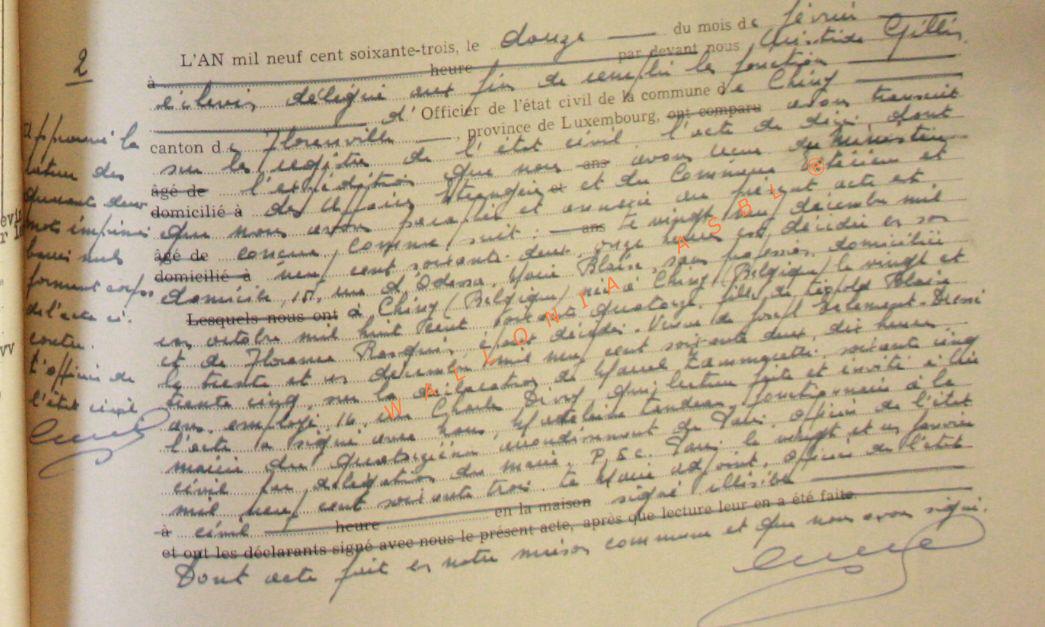 2
L'AN mil neuf cent soixante-trois, le douze du mois de février
à heure par devant nous Aristide Gillis
échevin délégué aux fin de remplir les fonctions
d' Officier de l'état civil de la commune de Chiny
canton de Florenville, province de Luxembourg, ont comparu avons transcrit
sur les registres de l'état civil l'acte de décès dont
âgé de l'expédition que nous ans avons reçue du Ministère
domicilié à des Affaires Etrangères et et du Commerce Extérieur et
que nous avons paraphée et annexée au présent acte est
âgé de conçue comme suit : ans Le vingt neuf décembre mil
domicilié à neuf cent soixante-deux onze heures est décédée en son
domicile, 15, rue d'Odessa, Marie Blaise, sans profession, domiciliée
Lesquels nous ont à Chiny (Belgique) née à Chiny (Belgique) le vingt et
un octobre mil huit cent soixante quatorze, fille de Léopold Blaise
et de Florence Rasquin, époux décédés. Veuve de Joseph
le trente et un décembre mil neuf cent soixante deux, dix heures
trente cinq, sur la déclaration de Marcel soixante cinq
ans, employé, 16, rue Charles Divry qui lecture faite et invité à lire
l'acte a signé avec nous, Madeleine fonctionnaire à la
mairie du quatorzième arrondissement de Paris, officier de l'état
civil par délégation du maire. P.E.C. Paris le vingt et un janvier
mil neuf cent soixante trois. Le Maire adjoint, officier de l'état
à civil heure en la maison signé illisible
et ont les déclarants signé avec nous le présent acte, après que lecture leur en a été faite.
Dont acte fait en notre maison commune et que nous avons signé.
Approuvé la
rature des
quarante deux
mots imprimés
barrés nuls
formant corps
de l'acte ci-
contre.
L'officier de
l'état civil
WALLONIA ASBL ©